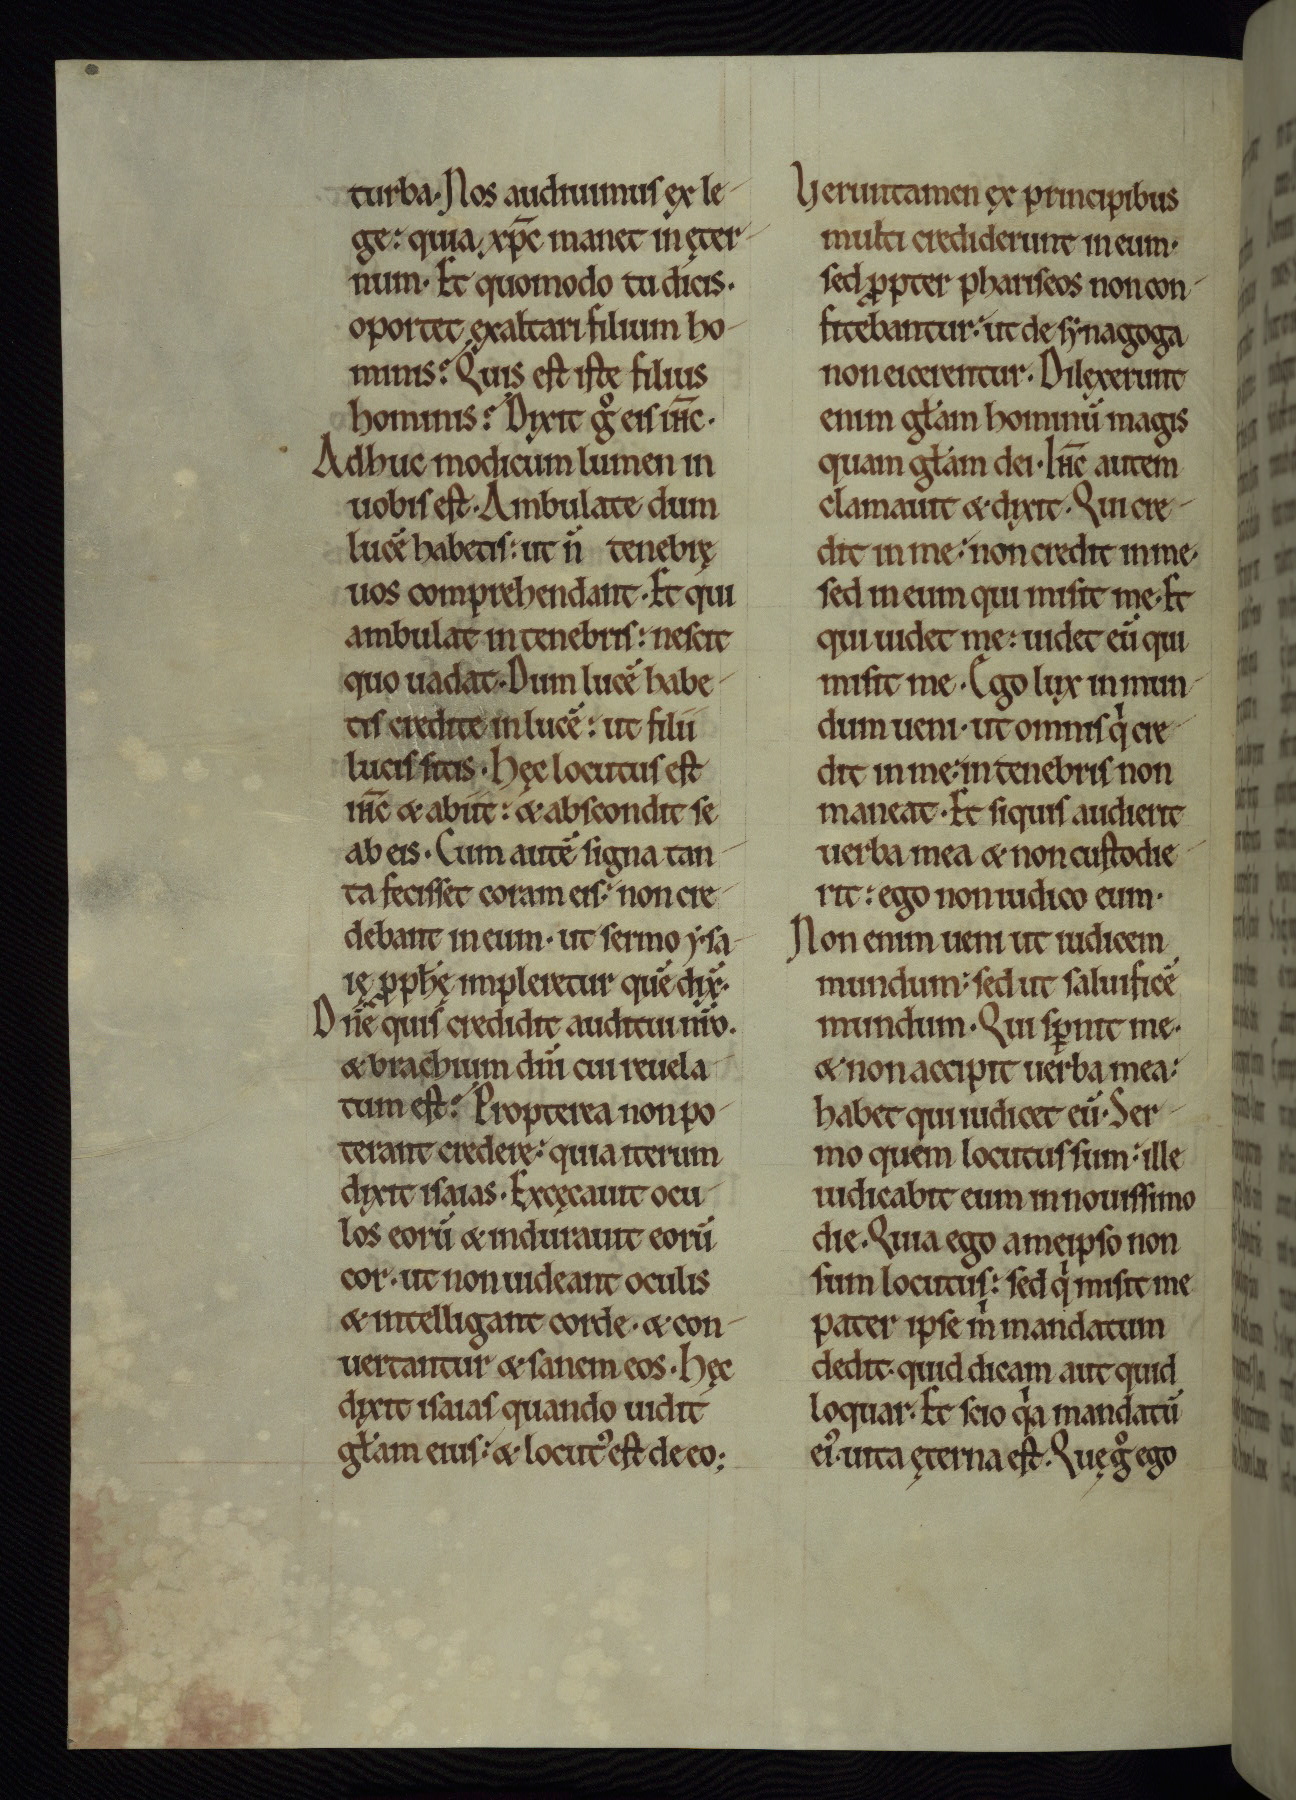 turba. Nos audiuimus ex le-
ge: quia xp̅c manet in ęter-
num. Et quomodo tu dicis.
oportet exaltari filium ho-
minis? Quis est iste filius
hominis? Dixit gͦ eis ih̅c.
Adhuc modicum lumen in
uobis est. Ambulate dum
lucē habetis: ut n̄ tenebrę
uos comprehendant. Et qui
ambulat in tenebris: nescit
quo uadat. Dum lucē habe-
tis credite in lucē: ut filii
lucis sitis. Hęc locutus est
ih̅c & abiit: & abscondit se
ab eis. Cum autē signa tan-
ta fecisset coram eis: non cre-
debant in eum. ut sermo ysa-
ię ꝓph̅ę impleretur quē dix̅.
Dn̅e quis credidit auditui nr̅o.
& brachium dn̅i cui reuela-
tum est? Propterea non po-
terant credere: quia iterum
dixit isaias. Excęcauit ocu-
los eorū & indurauit eorū
cor. ut non uideant oculis
& intelligant corde. & con-
uertantur & sanem eos. Hęc
dixit isaias quando uidit
gl̅am eius: & locutꝰ est de eo;
Veruntamen ex principibus
multi crediderunt in eum.
sed ꝓpter phariseos non con-
fitebantur: ut de synagoga
non eicerentur. Dilexerunt
enim gl̅am hominū magis
quam gl̅am dei. Ih̅c autem
clamauit & dixit. Qui cre-
dit in me: non credit in me.
sed in eum qui misit me. Et
qui uidet me: uidet eū qui
misit me. Ego lux in mun-
dum ueni. ut omnis qͥ cre-
dit in me: in tenebris non
maneat. Et siquis audierit
uerba mea & non custodie-
rit: ego non iudico eum.
Non enim ueni ut iudicem
mundum: sed ut saluificē
mundum. Qui sꝑnit me.
& non accipit uerba mea:
habet qui iudicet eū. Ser-
mo quem locutus sum: ille
iudicabit eum in nouissimo
die. Quia ego ameipso non
sum locutus: sed qͥ misit me
pater ipse mͥ mandatum
dedit. quid dicam aut quid
loquar. Et scio qͥa mandatū
eiꝰ. uita ęterna est. Quę gͦ ego